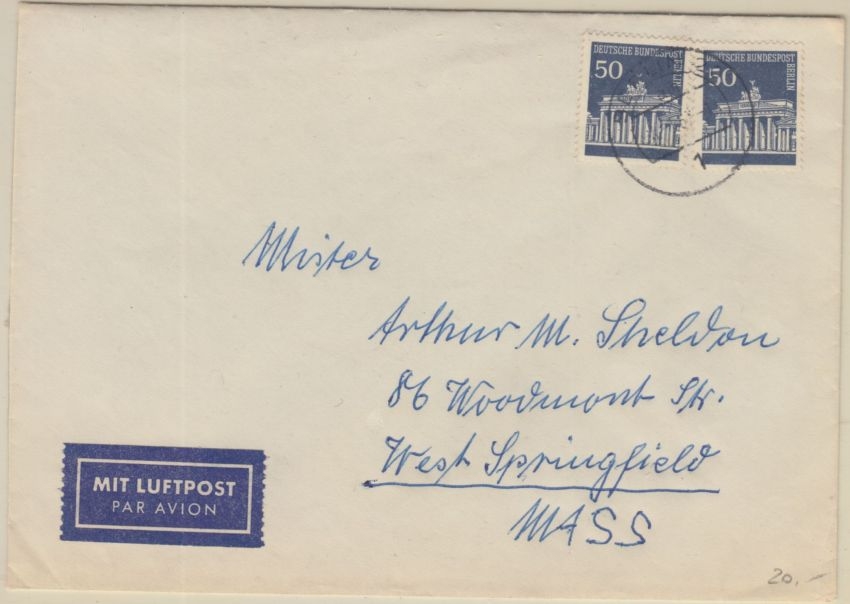 DEUTSCHE BUNDESPOST BERLIN
50
DEUTSCHE BUNDESPOST BERLIN
50
1
Mister
Arthur M. Sheldon
86 Woodmont Str.
West Springfield
MASS
MIT LUFTPOST
PAR AVION
20.-